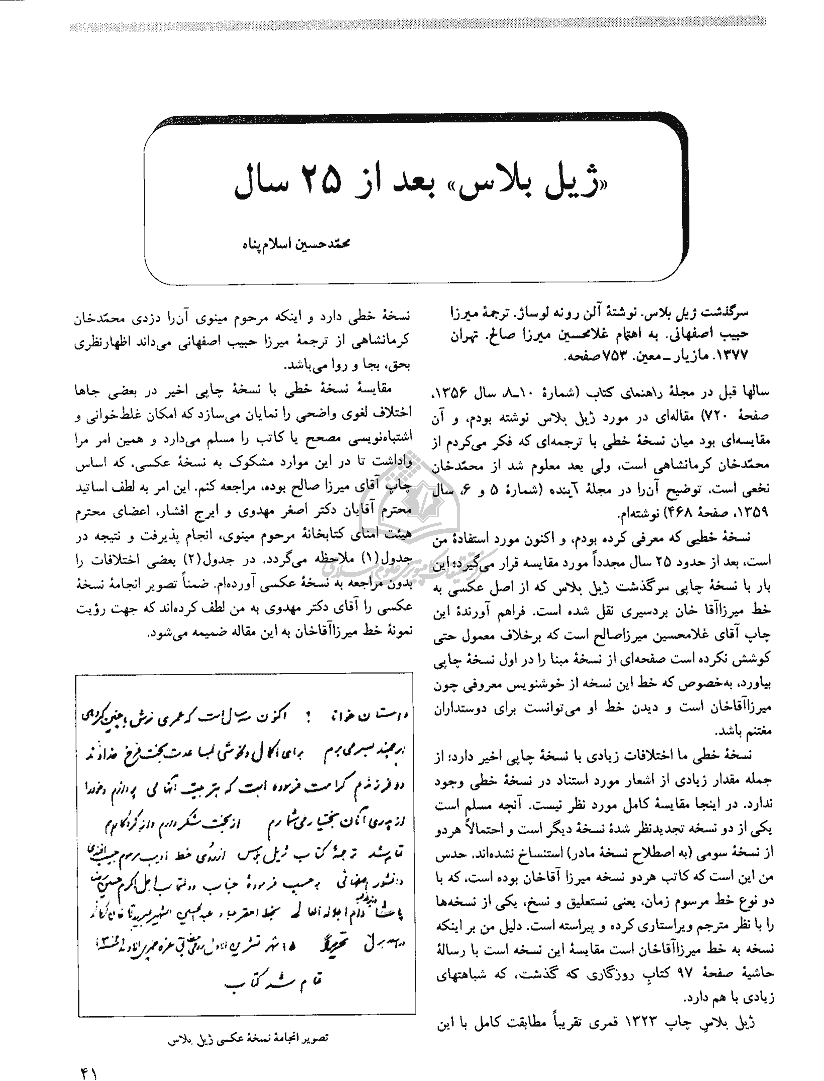 «ژیل بلاس» بعد از ۲۵ سال
محمّدحسین اسلام‌پناه
سرگذشت ژیل بلاس. نوشتهٔ آلن رونه لوساژ. ترجمهٔ میرزا
حبیب اصفهانی. به اهتمام غلامحسین میرزا صالح. تهران
۱۳۷۷. مازیار ـ معین. ۷۵۳ صفحه.
سالها قبل در مجلهٔ راهنمای کتاب (شمارهٔ ۱۰ـ۸، سال ۱۳۵۶،
صفحهٔ ۷۲۰) مقاله‌ای در مورد ژیل بلاس نوشته بودم، و آن
مقایسه‌ای بود میان نسخهٔ خطی با ترجمه‌ای که فکر می‌کردم از
محمدخان کرمانشاهی است، ولی بعد معلوم شد از محمدخان
نخعی است. توضیح آن‌را در مجلهٔ آینده (شمارهٔ ۵ و ۶، سال
۱۳۵۹، صفحهٔ ۴۶۸) نوشته‌ام.
نسخهٔ خطیی که معرفی کرده بودم، و اکنون مورد استفادهٔ من
است، بعد از حدود ۲۵ سال مجدداً مورد مقایسه قرار می‌گیرد؛ این
بار با نسخهٔ چاپی سرگذشت ژیل بلاس که از اصل عکسی به
خط میرزاآقا خان بردسیری نقل شده است. فراهم آورندهٔ این
چاپ آقای غلامحسین میرزاصالح است که برخلاف معمول حتی
کوشش نکرده است صفحه‌ای از نسخهٔ مبنا را در اول نسخهٔ چاپی
بیاورد، به‌خصوص که خط این نسخه از خوشنویس معروفی چون
میرزاآقاخان است و دیدن خط او می‌توانست برای دوستداران
مغتنم باشد.
نسخهٔ خطی ما اختلافات زیادی با نسخهٔ چاپی اخیر دارد؛ از
جمله مقدار زیادی از اشعار مورد استناد در نسخهٔ خطی وجود
ندارد. در اینجا مقایسهٔ کامل مورد نظر نیست. آنچه مسلم است
یکی از دو نسخه تجدیدنظر شدهٔ نسخهٔ دیگر است و احتمالاً هر دو
از نسخهٔ سومی (به اصطلاح نسخهٔ مادر) استنساخ نشده‌اند. حدس
من این است که کاتب هر دو نسخه میرزا آقاخان بوده است، که با
دو نوع خط مرسوم زمان، یعنی نستعلیق و نسخ، یکی از نسخه‌ها
را با نظر مترجم ویراستاری کرده و پیراسته است. دلیل من بر اینکه
نسخه به خط میرزاآقاخان است مقایسهٔ این نسخه است با رسالهٔ
حاشیهٔ صفحهٔ ۹۷ کتابِ روزگاری که گذشت، که شباهتهای
زیادی با هم دارد.
ژیل بلاس چاپ ۱۳۲۳ قمری تقریباً مطابقت کامل با این
نسخهٔ خطی دارد و اینکه مرحوم مینوی آن‌را دزدی محمّدخان
کرمانشاهی از ترجمهٔ میرزا حبیب اصفهانی می‌داند اظهارنظری
بحق، بجا و روا می‌باشد.
مقایسهٔ نسخهٔ خطی با نسخهٔ چاپی اخیر در بعضی جاها
اختلاف لغوی واضحی را نمایان می‌سازد که امکان غلط‌خوانی و
اشتباه‌نویسی مصحح یا کاتب را مسلم می‌دارد و همین امر مرا
واداشت تا در این موارد مشکوک به نسخهٔ عکسی، که اساس
چاپ آقای میرزا صالح بوده، مراجعه کنم. این امر به لطف اساتید
محترم آقایان دکتر اصغر مهدوی و ایرج افشار، اعضای محترم
هیئت امنای کتابخانهٔ مرحوم مینوی، انجام پذیرفت و نتیجه در
جدول(۱) ملاحظه می‌گردد. در جدول(۲) بعضی اختلافات را
بدون مراجعه به نسخهٔ عکسی آورده‌ام. ضمناً تصویر انجامهٔ نسخهٔ
عکسی را آقای دکتر مهدوی به من لطف کرده‌اند که جهت رؤیت
نمونهٔ خط میرزاآقاخان به این مقاله ضمیمه می‌شود.
اکنون سه سال است که عمری خوش
برای اکمال دلخوشی سعادت بخت فرخ
دو فرزندم کرامت فرموده است که بتربیت آنها می پردازم
از بخت شکر دارم
ترجمهٔ کتاب ژیل بلاس از روی خط
برحسب فرمودهٔ جناب
تمام شد کتاب
تصویر انجامهٔ نسخهٔ عکسی ژیل بلاس
۴۱